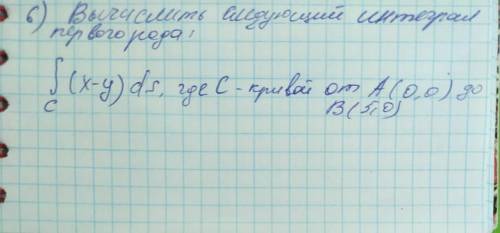 6) Вычислить следующий интеграл
первого рода:
∫ (x-y) ds, где C - кривой от A(0,0) до
C B(5,0)